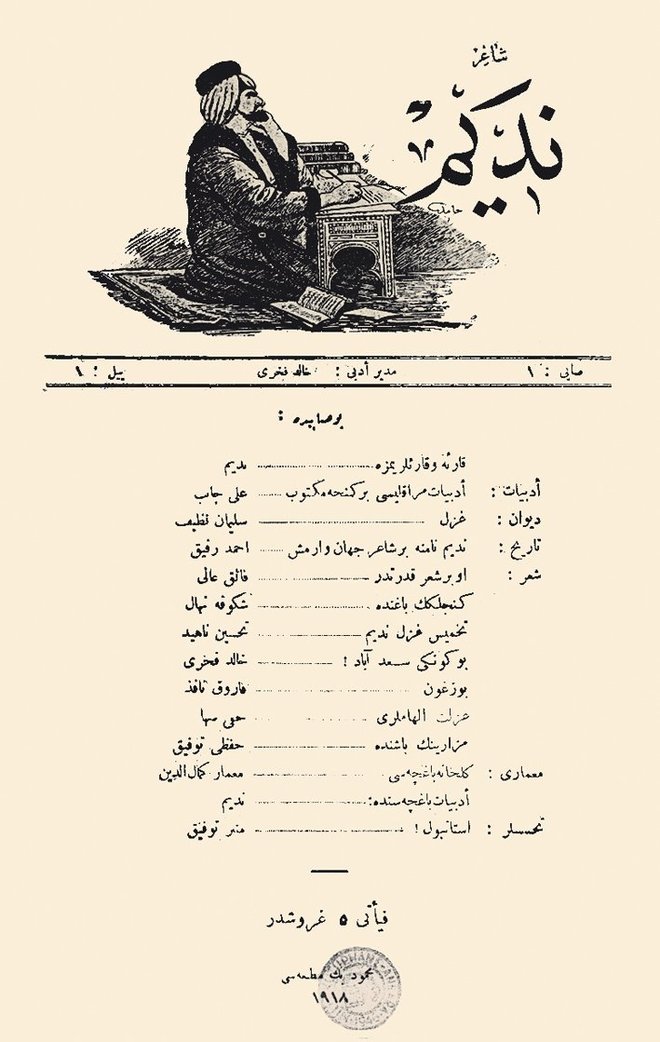 شاعر
نديم
حامد
صايى : ١ مدير أدبى : خالد فخرى ييل : ١
بو صاييده :
قارئه و قارئلريمزه نديم
أدبيات : أدبيات مراقليسى بر كنجه مكتوب على جانب
ديوان : غزل سليمان نظيف
تاريخ : نديم نامنه بر شاعر جهان وارمش احمد رفيق
شعر : او بر شعر قدرتدر فائق عالى
كنجلكك باغنده شكوفه نهال
تخميس غزل نديم تحسين ناهيد
بوكونكى سعد آباد ! خالد فخرى
بوزغون فاروق نافذ
عزلت الهاملرى حقى سها
مزارينك باشنده حفظى توفيق
معمارى : كلخانه باغچه‌سى معمار كمال الدين
أدبيات باغچه‌سنده : نديم
تحسسلر : استانبول ! توفيق
فيأتى ٥ غروشدر
محمود بك مطبعه‌سى
١٩١٨